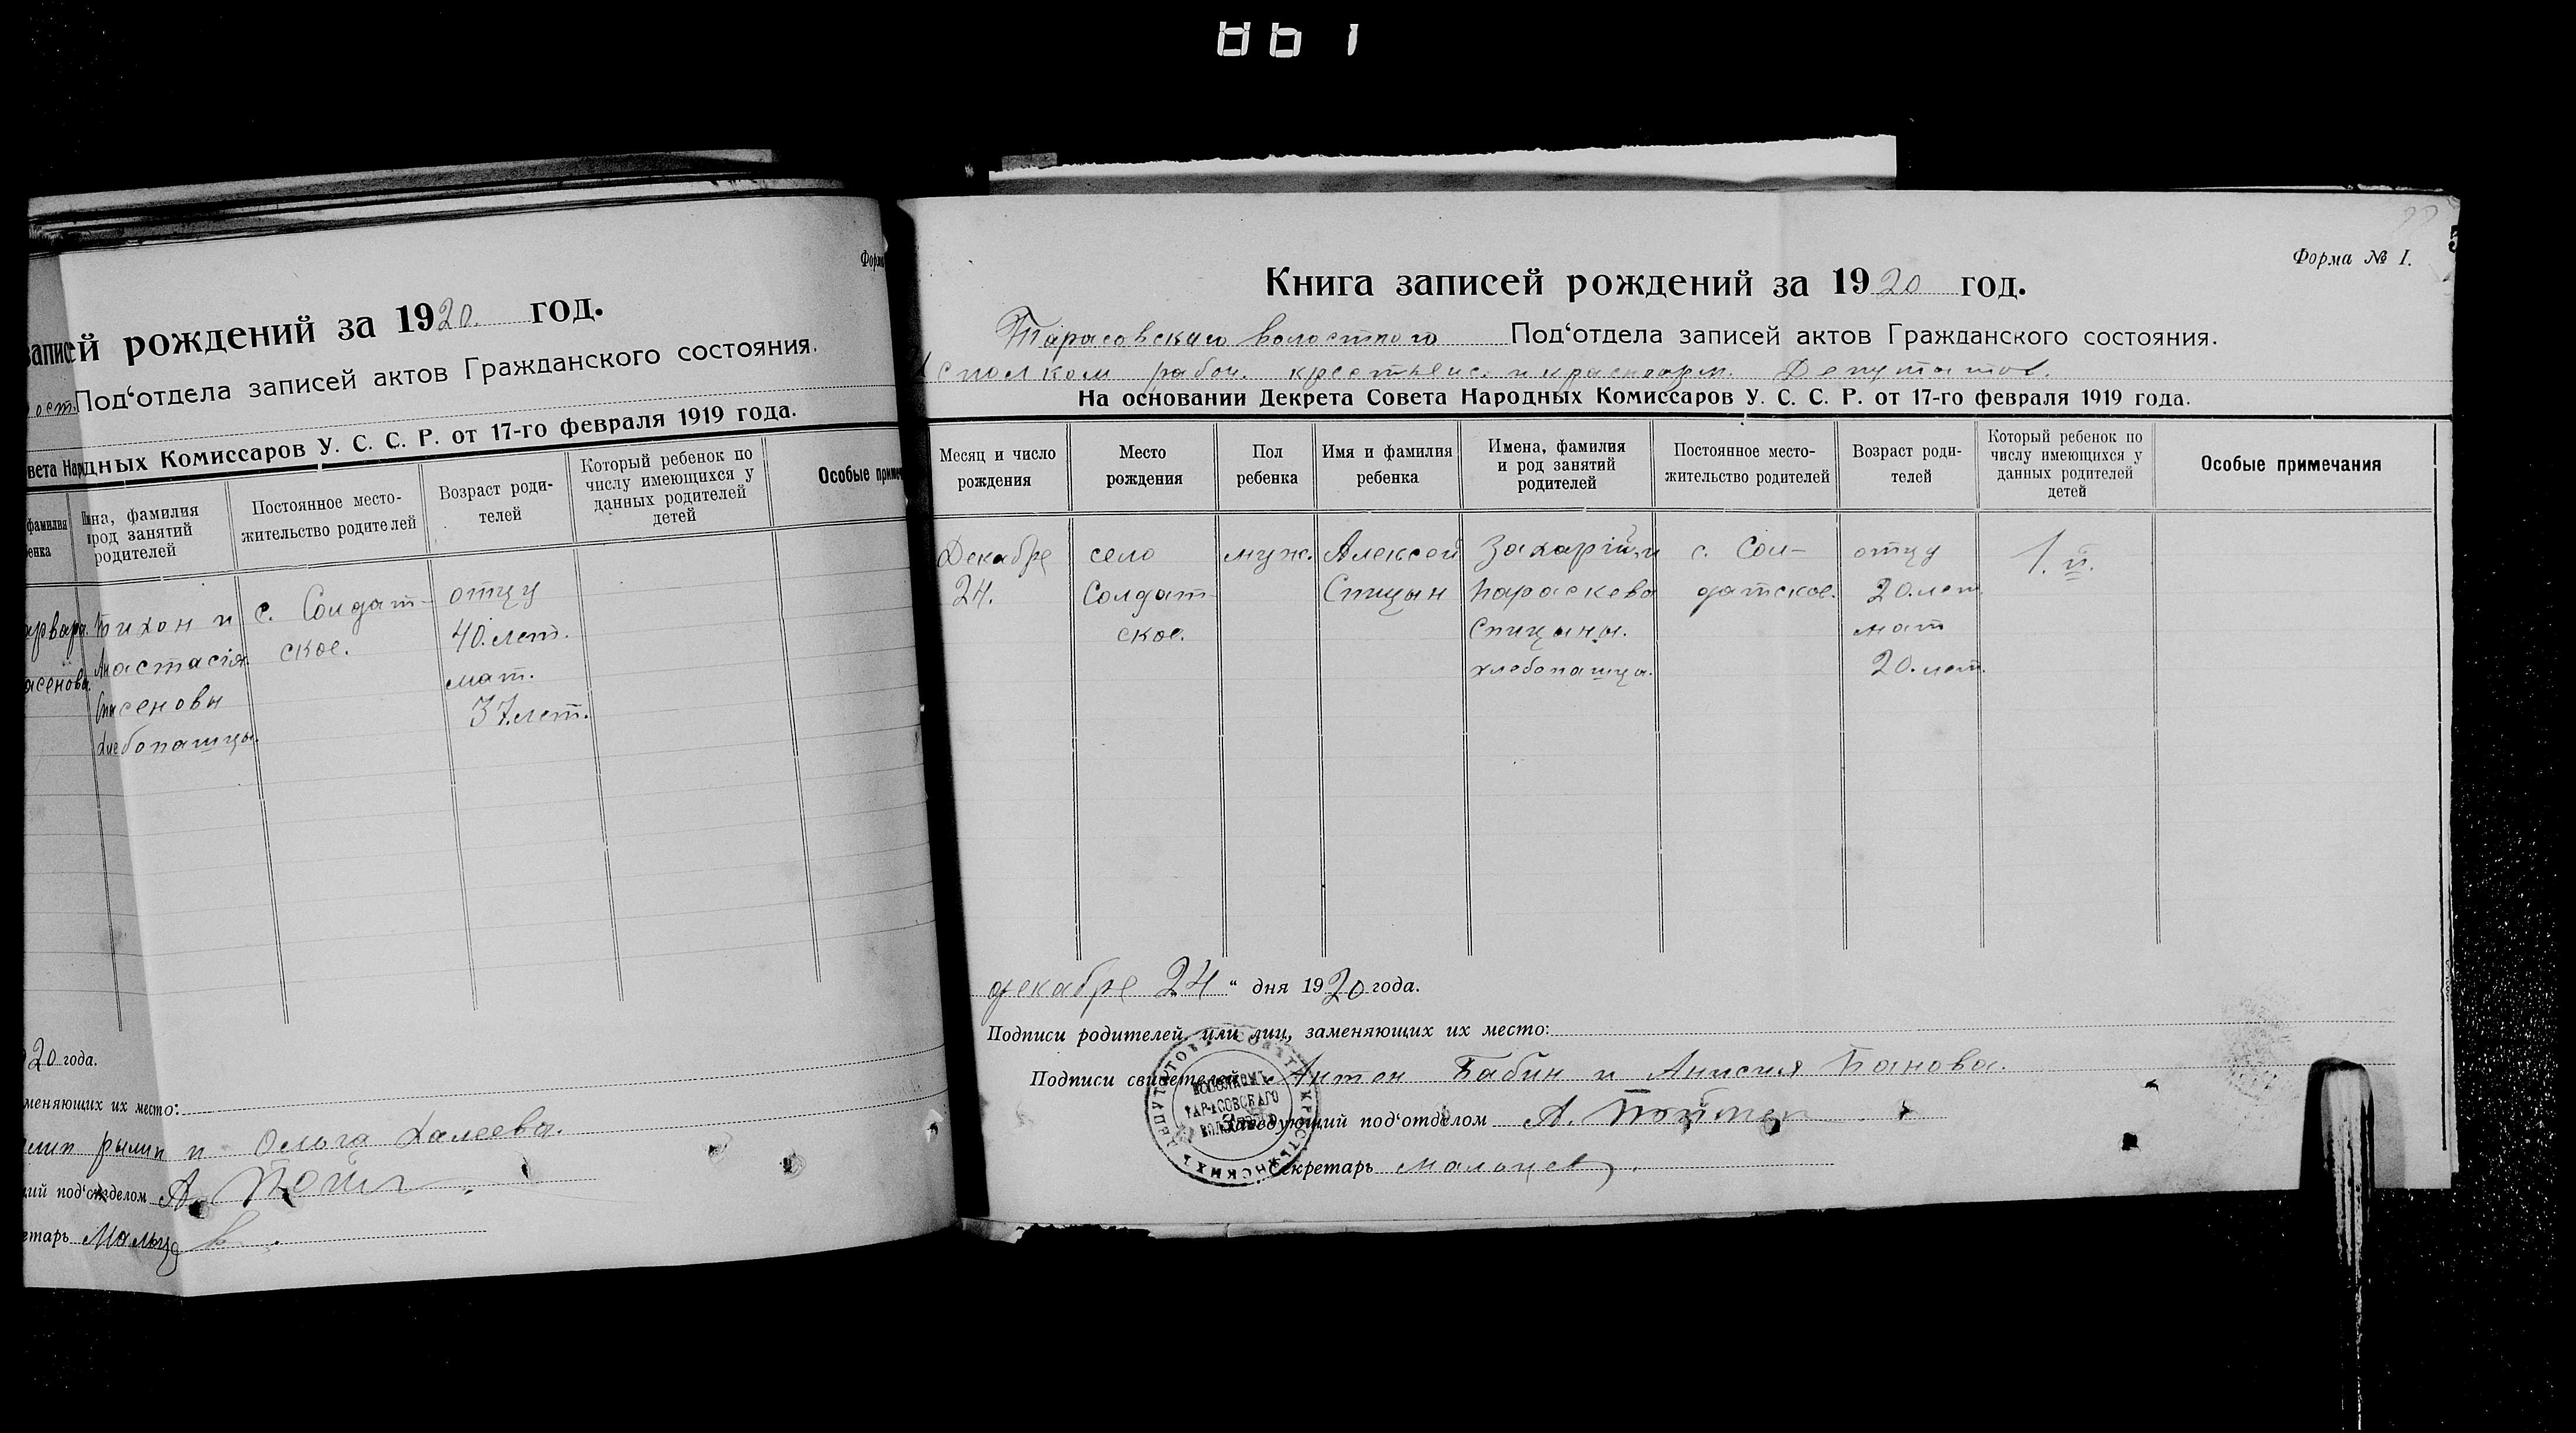 записей рождений за 1920. год.
Под‘отдела записей актов Гражданского состояния.
Народных Комиссаров У. С. С. Р. от 17-го февраля 1919 года.
фамилия
Имена, фамилия
и род занятий
родителей
Постоянное место-
жительство родителей
Возраст роди-
телей
Который ребенок по
числу имеющихся у
данных родителей
детей
Особые
Тихон и
Анастасія
хлебопашцы.
с. Солдат-
ское.
отцу
40. лет.
мат.
37. лет.
20 года.
их место:
и Ольга Халеева.
под‘отделом А.
Форма № I.
Книга записей рождений за 1920 год.
Тарасовскаго волостного Под‘отдела записей актов Гражданского состояния.
Исполком рабоч. крестьянс. и красноарм. Депутатов.
На основании Декрета Совета Народных Комиссаров У. С. С. Р. от 17-го февраля 1919 года.
Месяц и число
рождения
Место
рождения
Пол
ребенка
Имя и фамилия
ребенка
Имена, фамилия
и род занятий
родителей
Постоянное место-
жительство родителей
Возраст роди-
телей
Который ребенок по
числу имеющихся у
данных родителей
детей
Особые примечания
Декабре
24.
село
Солдат-
ское.
муж.
Алексей
Спицын
Захарій и
Параскева
Спицыны.
хлебопашцы.
с. Сол-
датское.
отцу
20. лет
мат
20. лет.
1. й.
декабре 24 “ дня 1920 года.
Подписи родителей, или лиц, заменяющих их место:
Подписи свидетелей Антон Бабин и Анисия Панова.
Заведующий под‘отделом А.
Секретарь Мальцев.
ИСПОЛКОМЪ
ТАРАСОВСКАГО